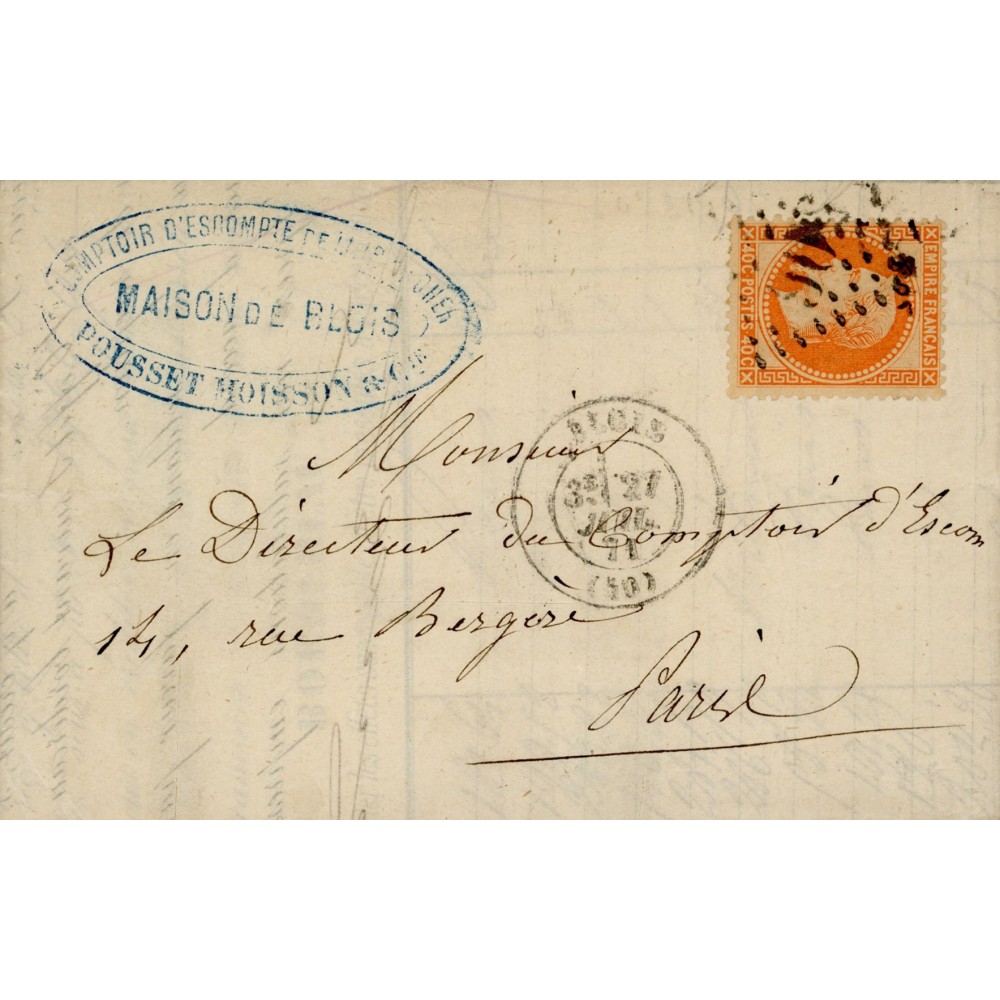 COMPTOIR D'ESCOMPTE DE LOIR & CHER
MAISON DE BLOIS
POUSSET MOISSON & Cie
EMPIRE FRANÇAIS
40C POSTES 40C
Monsieur
Le Directeur du Comptoir d'Escom
14, rue Bergère
Paris
BLOIS
3E 27
JUIL.
71
(40)